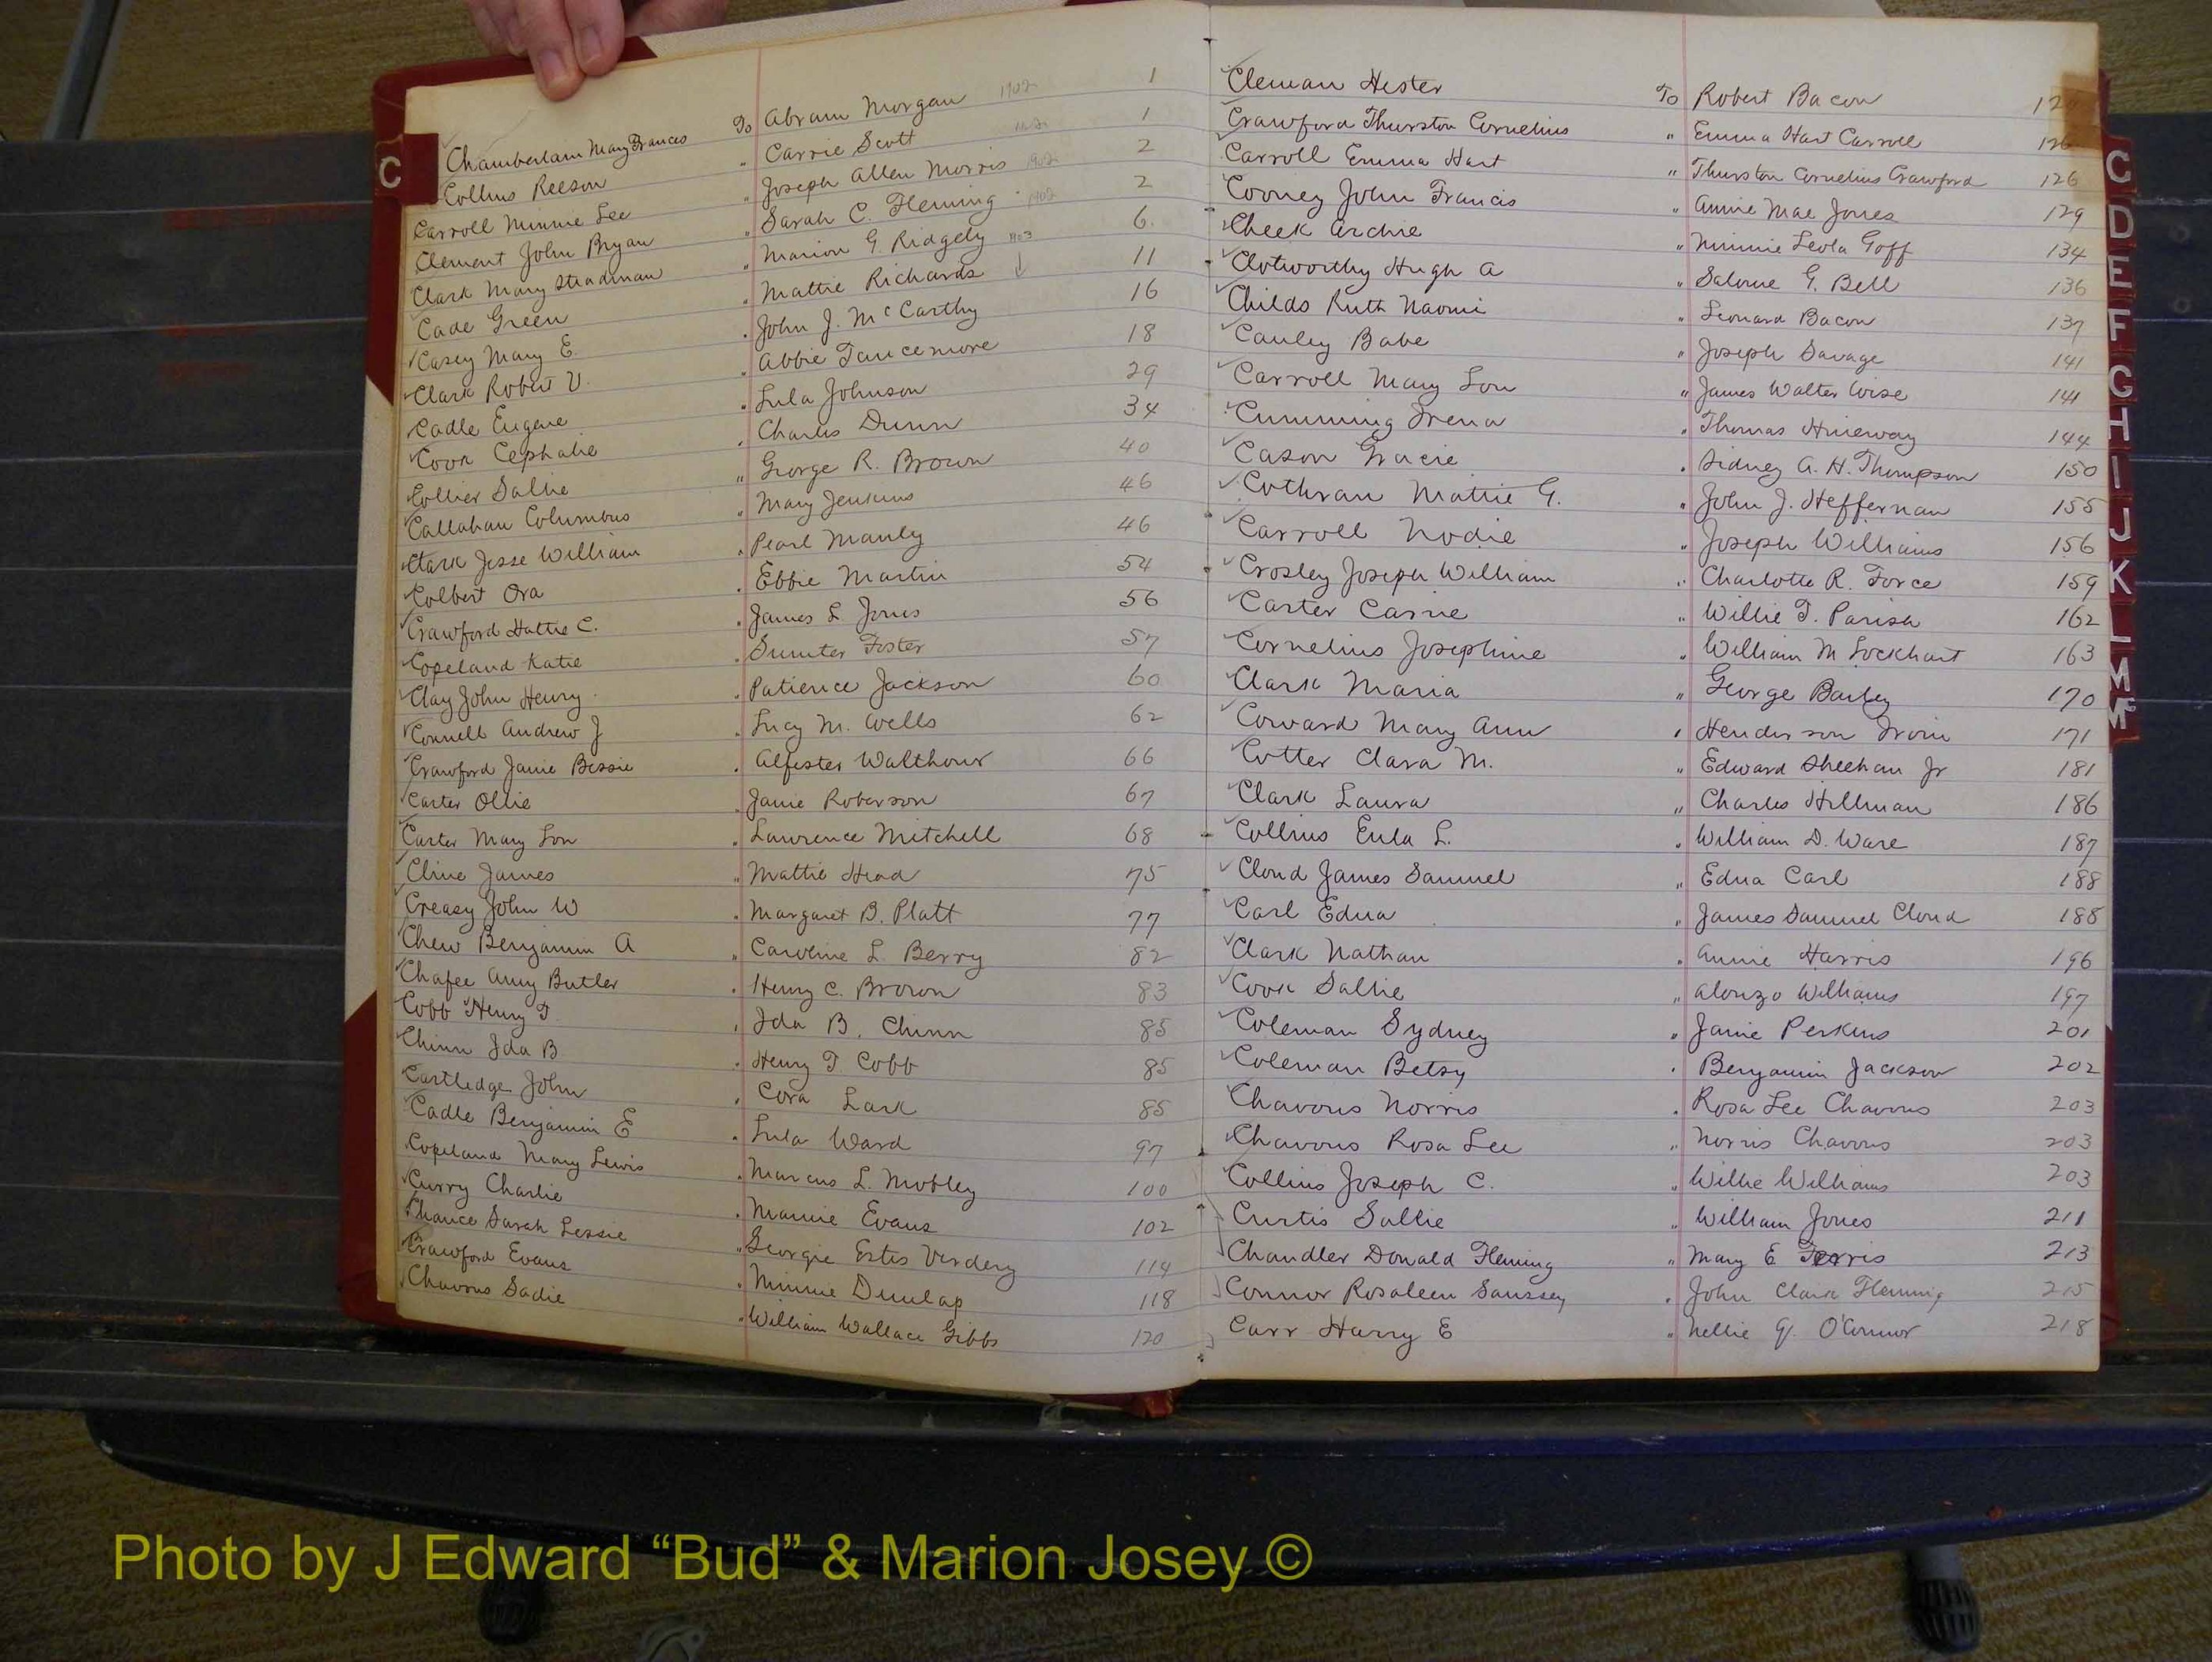 C
Chamberlain Mary Frances To Abram Morgan 1902 1
Collins Reeson " Carrie Scott 1902 1
Carroll Minnie Lee " Joseph Allen Morris 1902 2
Clement John Bryan " Sarah C. Fleming 1902 2
Clark Mary Steadman " Marion G. Ridgely 1903 6
Cade Green " Mattie Richards 11
Casey Mary E. " John J. McCarthy 16
Clark Robert V. " Abbie Tancemore 18
Cadle Eugene " Lula Johnson 29
Cook Cephalie " Charles Dunn 34
Collier Sallie " George R. Brown 40
Callahan Columbus " Mary Jenkins 46
Clark Jesse William " Pearl Manly 46
Colbert Ora " Ebbie Martin 54
Crawford Hattie C. " James L. Jones 56
Copeland Katie " Sumter Foster 57
Clay John Henry " Patience Jackson 60
Connell Andrew J " Lucy M. Wells 62
Crawford Janie Bessie " Alfester Walthour 66
Carter Ollie " Janie Roberson 67
Carter Mary Lou " Lawrence Mitchell 68
Cline James " Mattie Head 75
Creasy John W " Margaret B. Platt 77
Chew Benjamin A " Caroline L. Berry 82
Chafee Amy Butler " Henry C. Brown 83
Cobb Henry T " Ida B. Chinn 85
Chinn Ida B " Henry T. Cobb 85
Cartledge John " Cora Lark 85
Cadle Benjamin E " Lula Ward 97
Copeland Mary Lewis " Marcus L. Mobley 100
Curry Charlie " Mamie Evans 102
Chance Sarah Lessie " Georgie Estes Verdery 114
Crawford Evans " Minnie Dunlap 118
Chavous Sadie " William Wallace Gibbs 120
Cleman Hester To Robert Bacon
Crawford Thurston Cornelius " Emma Hart Carroll 126
Carroll Emma Hart " Thurston Cornelius Crawford 126
Cooney John Francis " Annie Mae Jones 129
Cheek Archie " Minnie Leola Goff 134
Clotworthy Hugh A " Salome G. Bell 136
Childs Ruth Naomi " Leonard Bacon 137
Cauley Babe " Joseph Savage 141
Carroll Mary Lou " James Walter Wise 141
Cumming Irena " Thomas Hineway 144
Cason Gracie " Sidney A. H. Thompson 150
Cothran Mattie G. " John J. Heffernan 155
Carroll Nodie " Joseph Williams 156
Crosley Joseph William " Charlotte R. Force 159
Carter Carrie " Willie T. Parish 162
Cornelius Josephine " William M Lockhart 163
Clark Maria " George Bailey 170
Coward Mary Ann " Henderson Irvin 171
Cotter Clara M. " Edward Sheehan Jr 181
Clark Laura " Charles Hillman 186
Collins Eula L. " William D. Ware 187
Cloud James Samuel " Edna Carl 188
Carl Edna " James Samuel Cloud 188
Clark Nathan " Annie Harris 196
Cook Sallie " Alonzo Williams 197
Coleman Sydney " Janie Perkins 201
Coleman Betsy " Benjamin Jackson 202
Chavous Norris " Rosa Lee Chavous 203
Chavous Rosa Lee " Norris Chavous 203
Collins Joseph C. " Willie Williams 203
Curtis Sallie " William Jones 211
Chandler Donald Fleming " Mary E Ferris 213
Connor Rosaleen Saussey " John Clark Fleming 215
Carr Harry E " Nellie G. O'Connor 218
C
D
E
F
G
H
I
J
K
L
M
Mc
Photo by J Edward “Bud” & Marion Josey ©